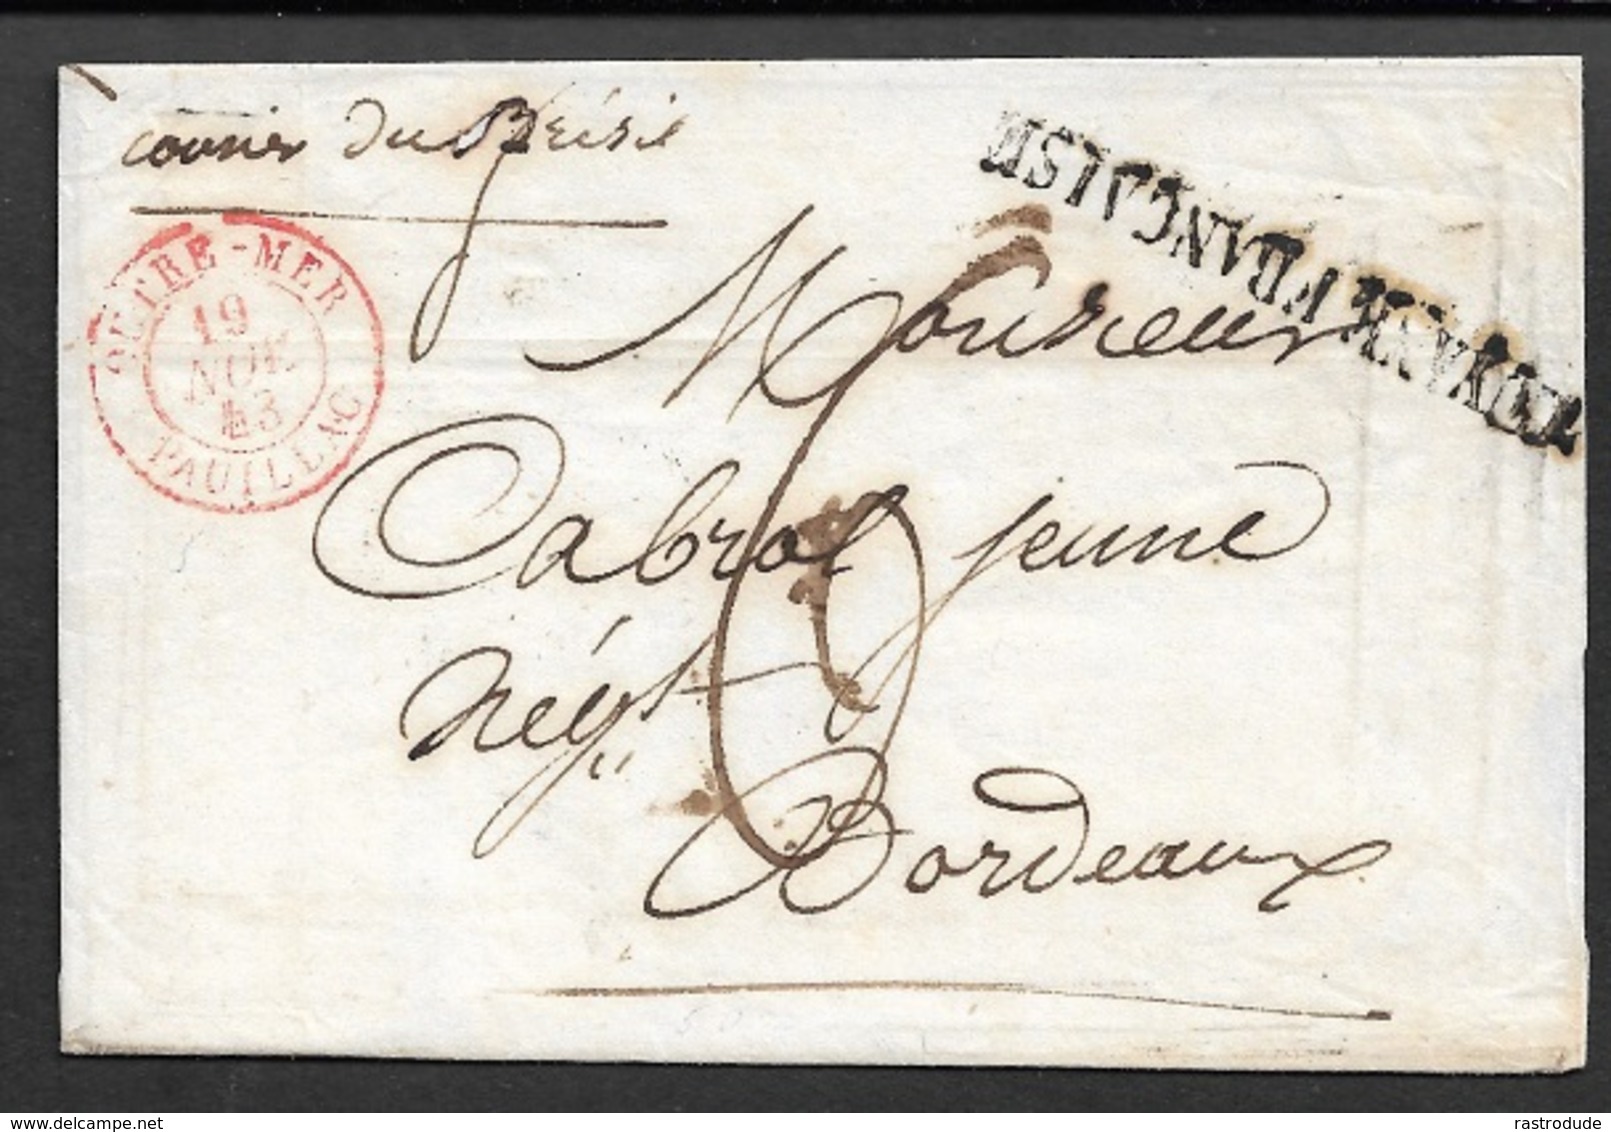 courier du Brésil
OUTRE-MER
19
NOV
43
PAUILLAC
Monsieur
Cabrol jeune
négt
Bordeaux
delcampe.net
rastrodude